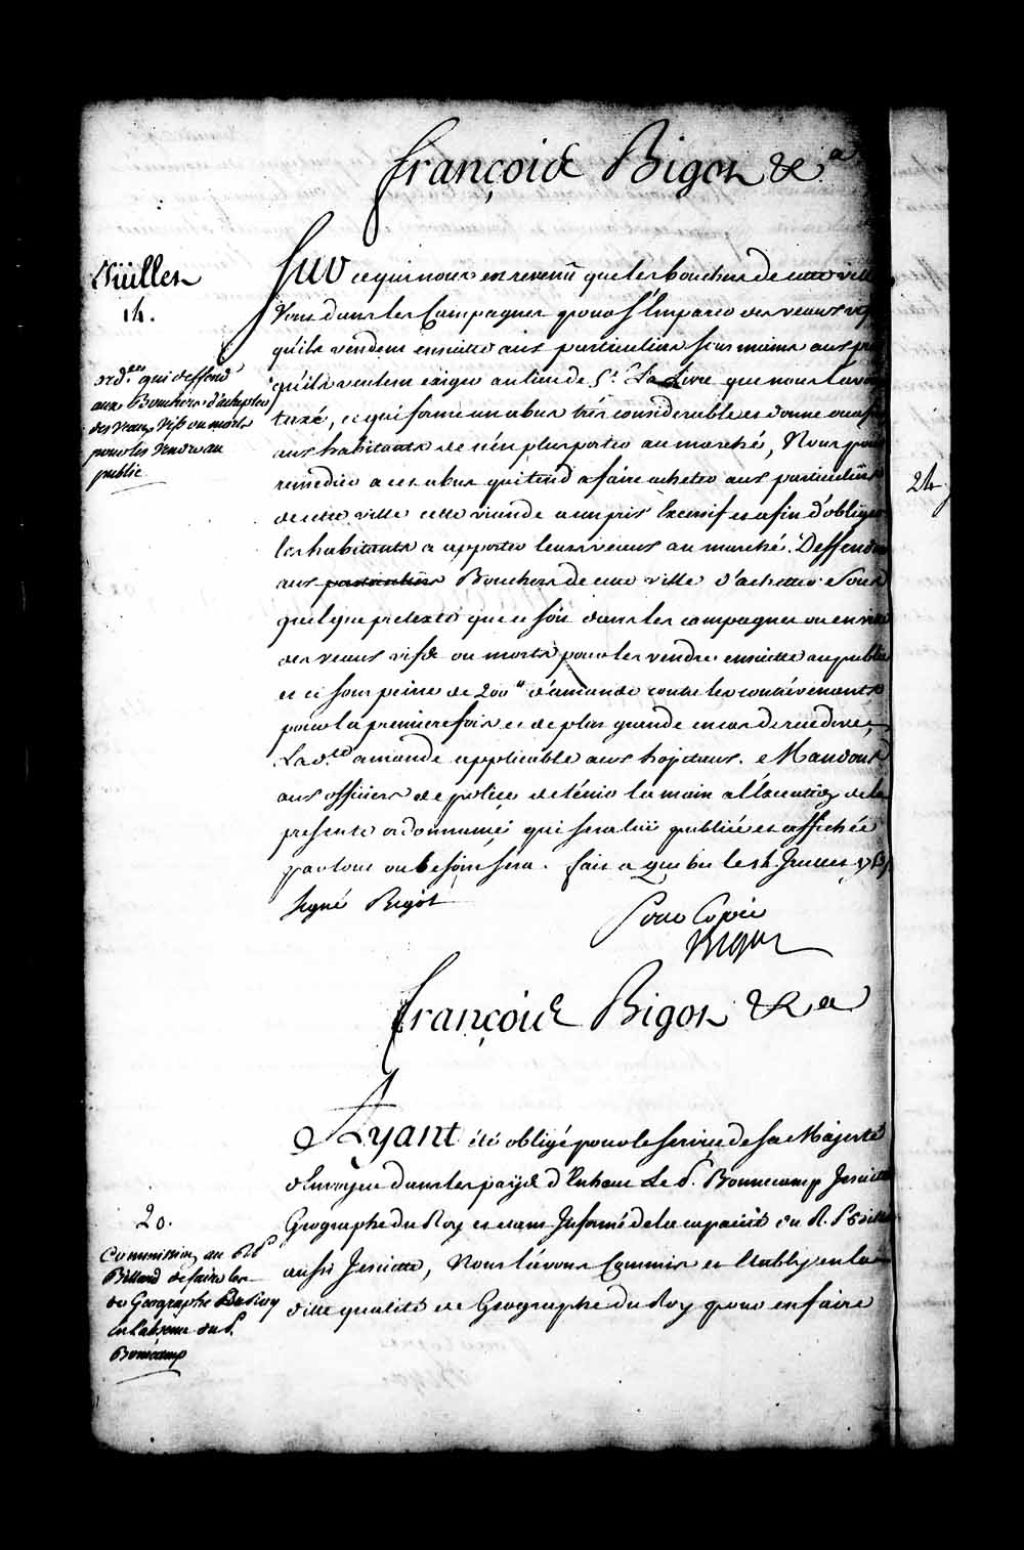 François Bigot &.a
Juillet
14.
ord.ce qui deffend
aux Bouchers d'achepter
des veaux vifs ou morts
pour les vendre au
public
Sur ce qui nous est revenü que les bouchers de cette ville
Vont dans les Campagnes pour s'Emparer des veaux vifs
qu'ils vendent ensuitte aux particuliers
qu'ils veulent exiger au lieu de 5.s La Livre que nous l'avons
taxé, ce qui forme un abus tres considerable et donne
aux habitants de n'en plus porter au marché, Nous pour
remedier a cet abus qui tend a faire acheter aux particuliers
de cette ville cette viande a un prix Excessif et afin d'obliger
les habitants a apporter leurs veaux au marché. Deffendons
aux particuliers Bouchers de cette ville d'achetter Sous
quelque pretexte que ce soit dans les campagnes ou en ville
des veaux vifs ou morts pour les vendre ensuitte au public
et ce sous peine de 200.tt d'amande contre les contrevenants
pour la premiere fois et de plus grande en cas de recidive,
La d.te amande applicable aux hopitaux. Mandons
aux officiers de police de tenir la main a l'Execution de la
presente ordonnance qui sera lüe publiée et affichée
par tout ou besoin sera. fait a Quebec le 14. Juillet
signé Bigot
Pour Copie
Bigot
François Bigot &.a
20.
Commission au
Billard de faire les
de Geographe Du Roy
en l'absence du P.
Bonecamp
Ayant été obligé pour le service de Sa Majesté
d'Envoyer dans les pays d'Enhaut Le P. Bonnecamp Jesuitte
Geographe du Roy et etant Informé de la capacité du R. P. Billard
aussi Jesuitte, Nous l'avons Commis et Etably en la
ditte qualité de Geographe du Roy pour en faire
24.